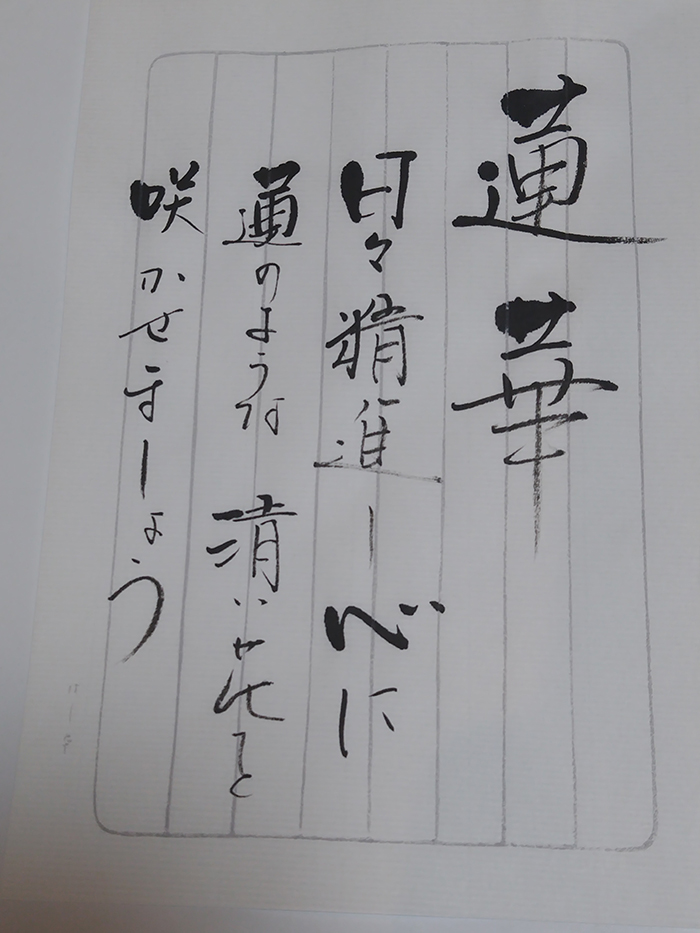 蓮華
日々精進し心に
蓮のような清い花を
咲かせましょう